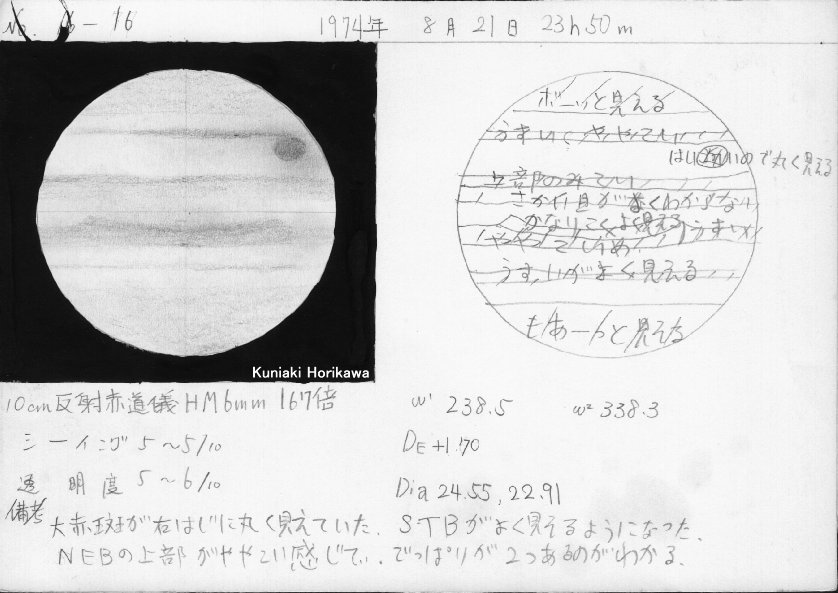 No. 6-16 1974年 8月 21日 23h 50m
ボーッと見える
うすいくややてい
はしいので丸く見える
上部のみてい
さかい目がよくわからない
かなりこくよく見える うすい
やや
うすいがよく見える
もあーっと見える
Kuniaki Horikawa
10cm反射赤道儀 HM6mm 167倍
ω¹ 238.5 ω² 338.3
シーイング 5〜5/10
DE +1.70
透明度 5〜6/10
Dia 24.55, 22.91
備考
大赤斑が右はじに丸く見えていた. STBがよく見えるようになった.
NEBの上部がややこい感じで. でっぱりが2つあるのがわかる.